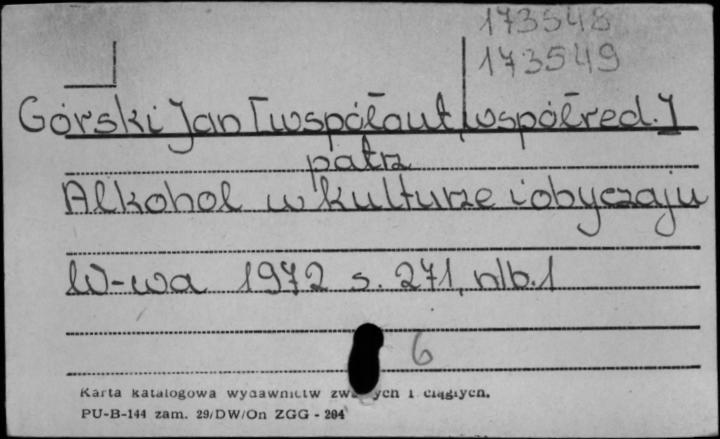 173548
173549
Górski Jan [współaut, współred.]
patrz
Alkohol w kulturze i obyczaju
W-wa 1972 s. 271, nlb. 1
6
Karta katalogowa wydawnictw ciągłych.
PU-B-144 zam. 29/DW/On ZGG - 204